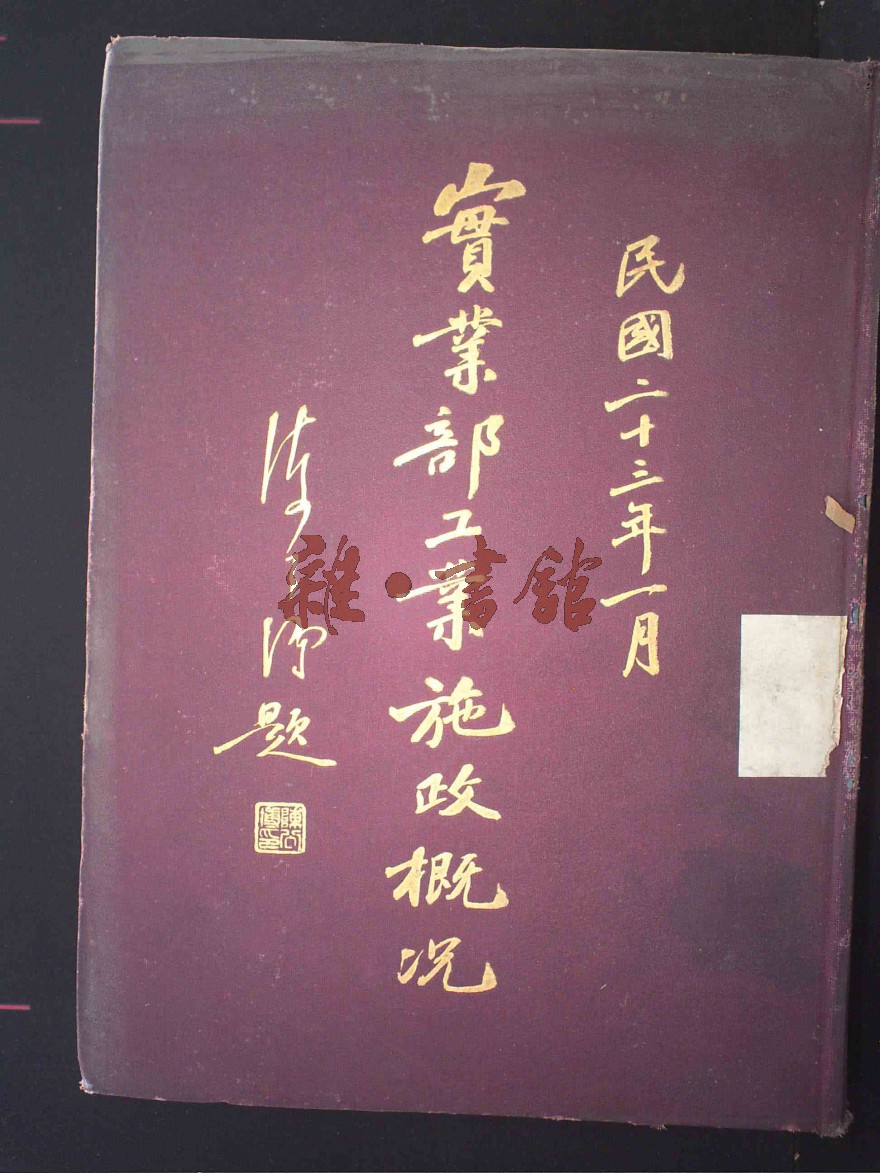 民國二十三年一月
實業部工業施政概况
陳公博題
陳公博印
雜·書館